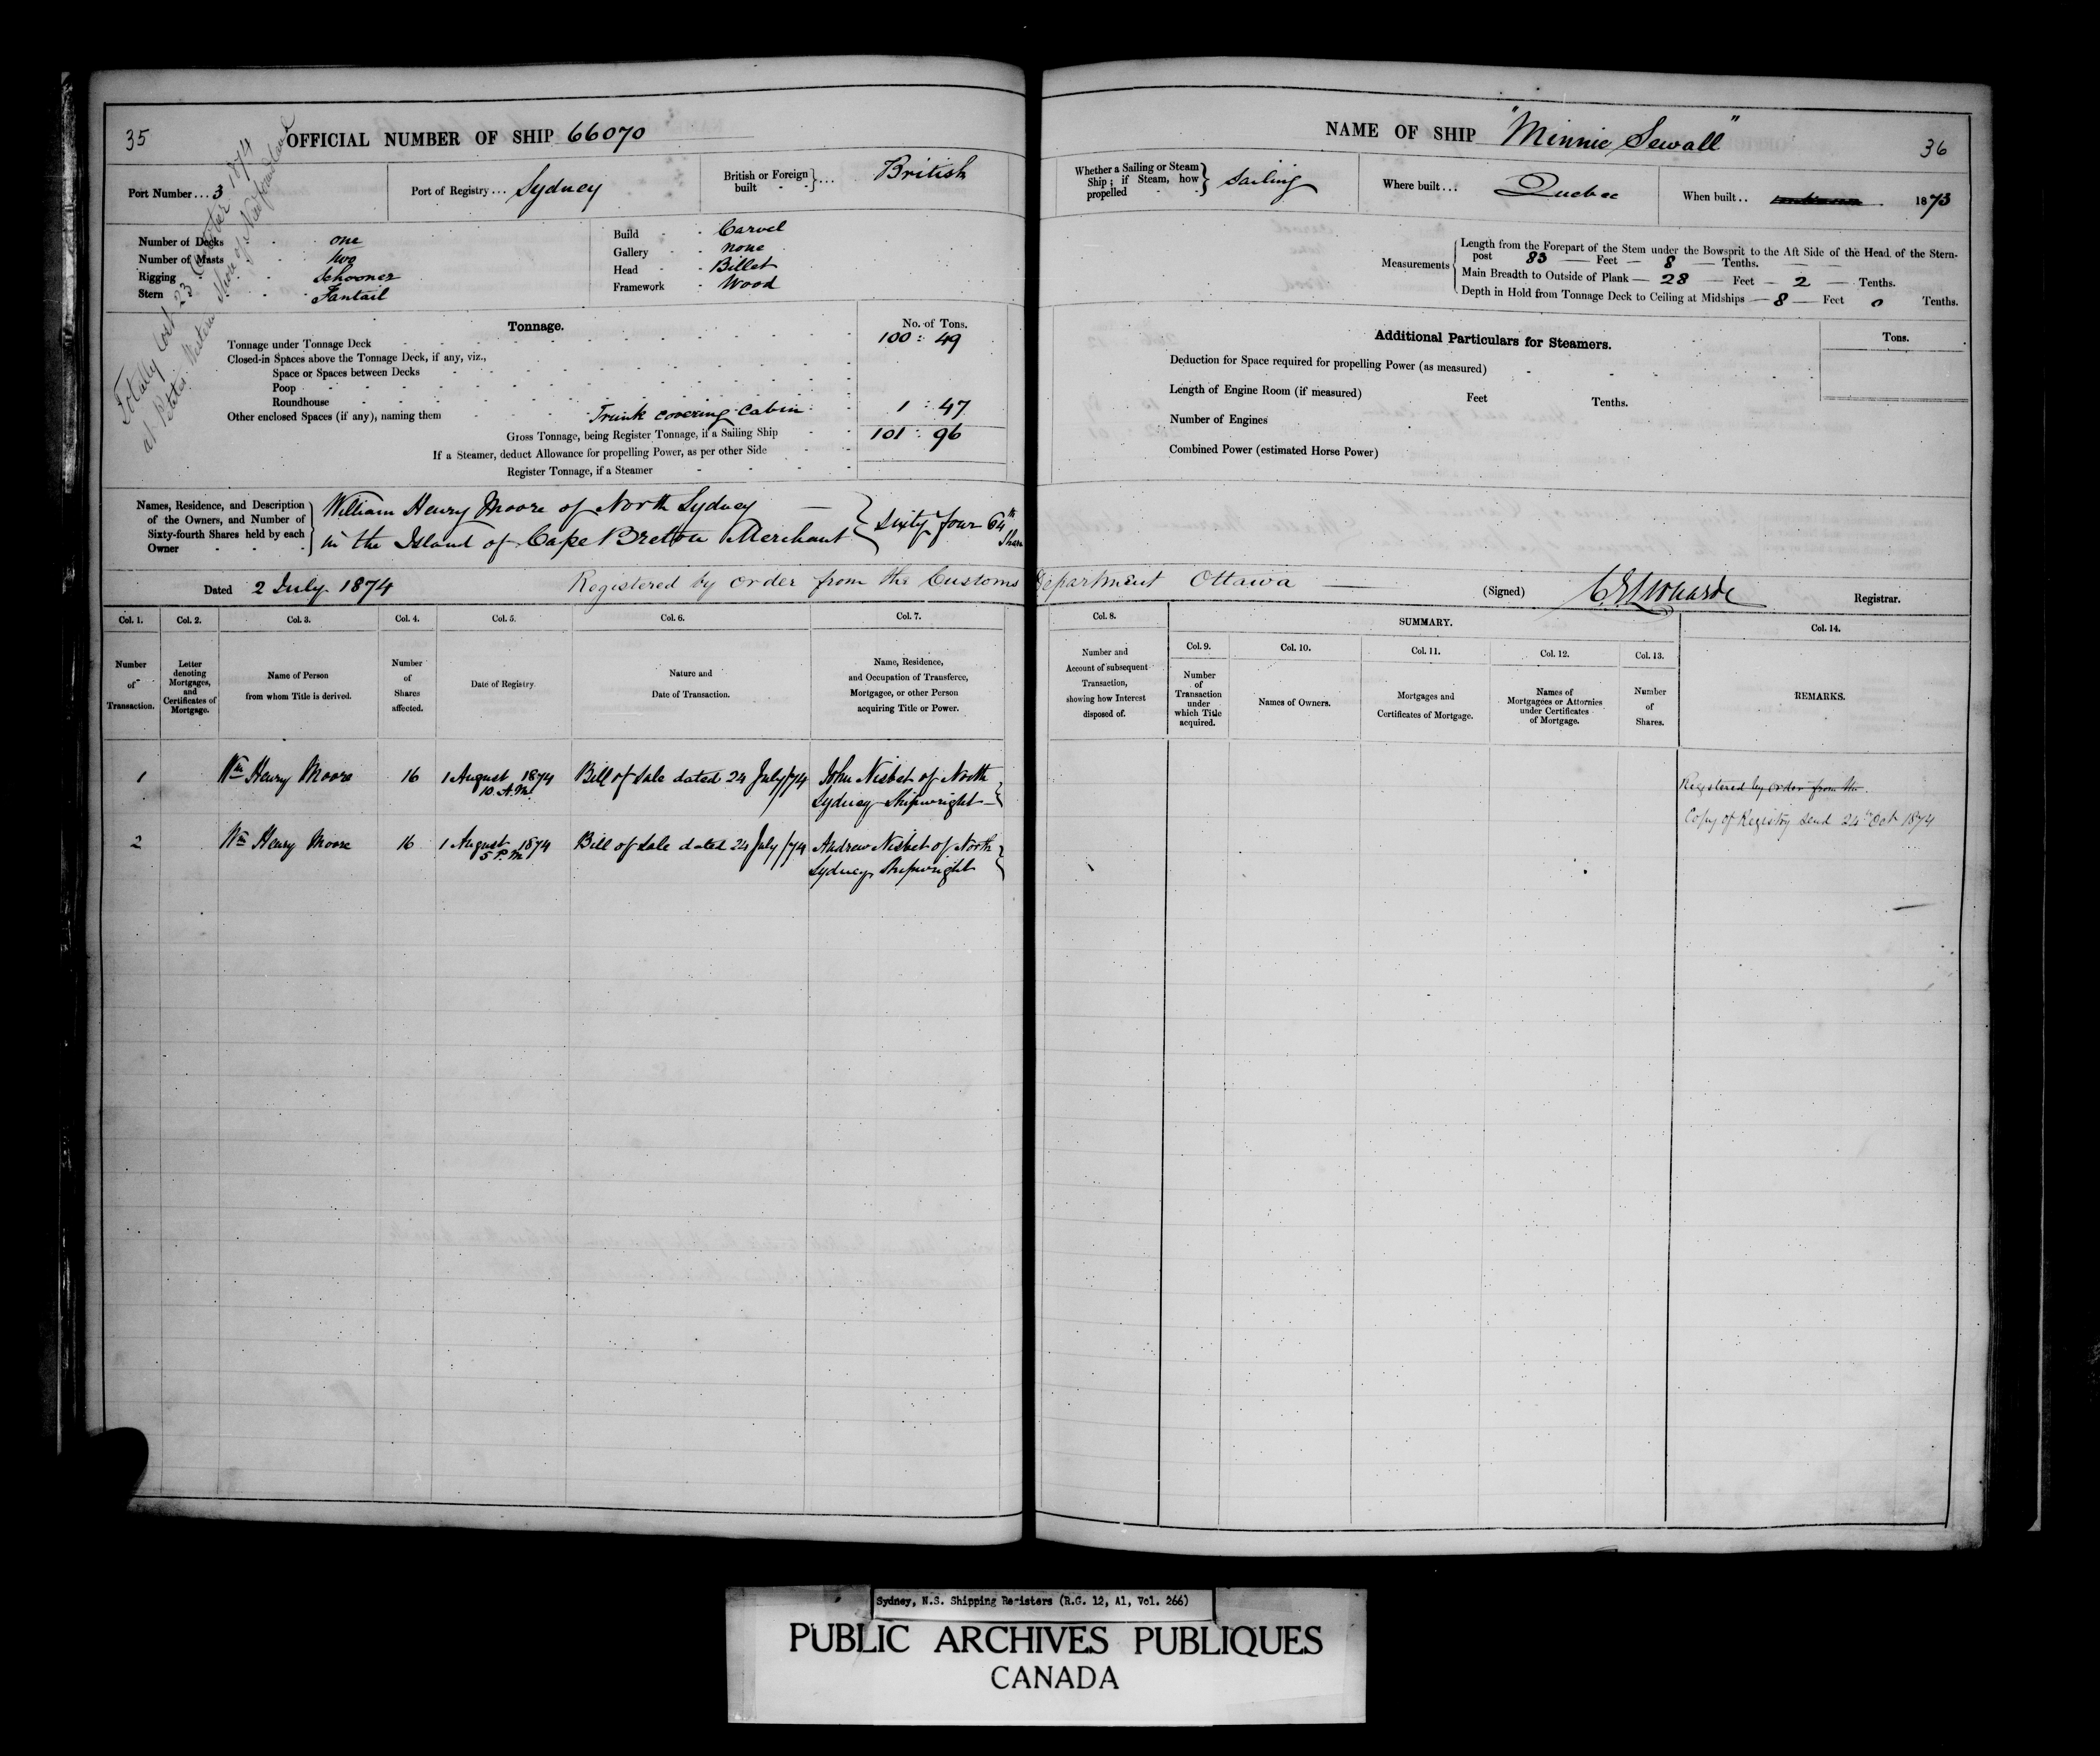 35
OFFICIAL NUMBER OF SHIP 66070
Totally lost 23 October 1874
at Western Shore of Newfoundland
Port Number ... 3
Port of Registry ... Sydney
British or Foreign built } ... British
Number of Decks one
Number of Masts two
Rigging Schooner
Stern Fantail
Build Carvel
Gallery none
Head Billet
Framework Wood
Tonnage.
No. of Tons.
Tonnage under Tonnage Deck 100 : 49
Closed-in Spaces above the Tonnage Deck, if any, viz.,
Space or Spaces between Decks
Poop
Roundhouse
Other enclosed Spaces (if any), naming them Trunk covering Cabin 1 : 47
Gross Tonnage, being Register Tonnage, if a Sailing Ship 101 : 96
If a Steamer, deduct Allowance for propelling Power, as per other Side
Register Tonnage, if a Steamer
Names, Residence, and Description
of the Owners, and Number of
Sixty-fourth Shares held by each
Owner
William Henry Moore of North Sydney
in the Island of Cape Breton Merchant } Sixty four 64th Shares
Dated 2 July 1874 Registered by order from the Customs Department Ottawa (Signed) Registrar.
Col. 1. Col. 2. Col. 3. Col. 4. Col. 5. Col. 6. Col. 7.
Number of Transaction.
Letter denoting Mortgages, and Certificates of Mortgage.
Name of Person from whom Title is derived.
Number of Shares affected.
Date of Registry.
Nature and Date of Transaction.
Name, Residence, and Occupation of Transferee, Mortgagee, or other Person acquiring Title or Power.
1 Wm Henry Moore 16 1 August 1874 10 A.M. Bill of Sale dated 24 July/74 John Nisbet of North
Sydney Shipwright
2 Wm Henry Moore 16 1 August 1874 5 P.M. Bill of Sale dated 24 July/74 Andrew Nisbet of North
Sydney Shipwright
NAME OF SHIP "Minnie Sewall"
36
Whether a Sailing or Steam Ship; if Steam, how propelled } Sailing
Where built ... Quebec
When built .. 1873
Measurements
Length from the Forepart of the Stem under the Bowsprit to the Aft Side of the Head of the Stern-
post 83 Feet 8 Tenths.
Main Breadth to Outside of Plank 28 Feet 2 Tenths.
Depth in Hold from Tonnage Deck to Ceiling at Midships 8 Feet 0 Tenths.
Additional Particulars for Steamers.
Tons.
Deduction for Space required for propelling Power (as measured)
Length of Engine Room (if measured) Feet Tenths.
Number of Engines
Combined Power (estimated Horse Power)
Col. 8.
SUMMARY.
Col. 9. Col. 10. Col. 11. Col. 12. Col. 13. Col. 14.
Number and Account of subsequent Transaction, showing how Interest disposed of.
Number of Transaction under which Title acquired.
Names of Owners.
Mortgages and Certificates of Mortgage.
Names of Mortgagees or Attornies under Certificates of Mortgage.
Number of Shares.
REMARKS.
Registered by order from the
Copy of Registry send 24th Oct 1874
Sydney, N.S. Shipping Registers (R.G. 12, A1, Vol. 266)
PUBLIC ARCHIVES PUBLIQUES
CANADA